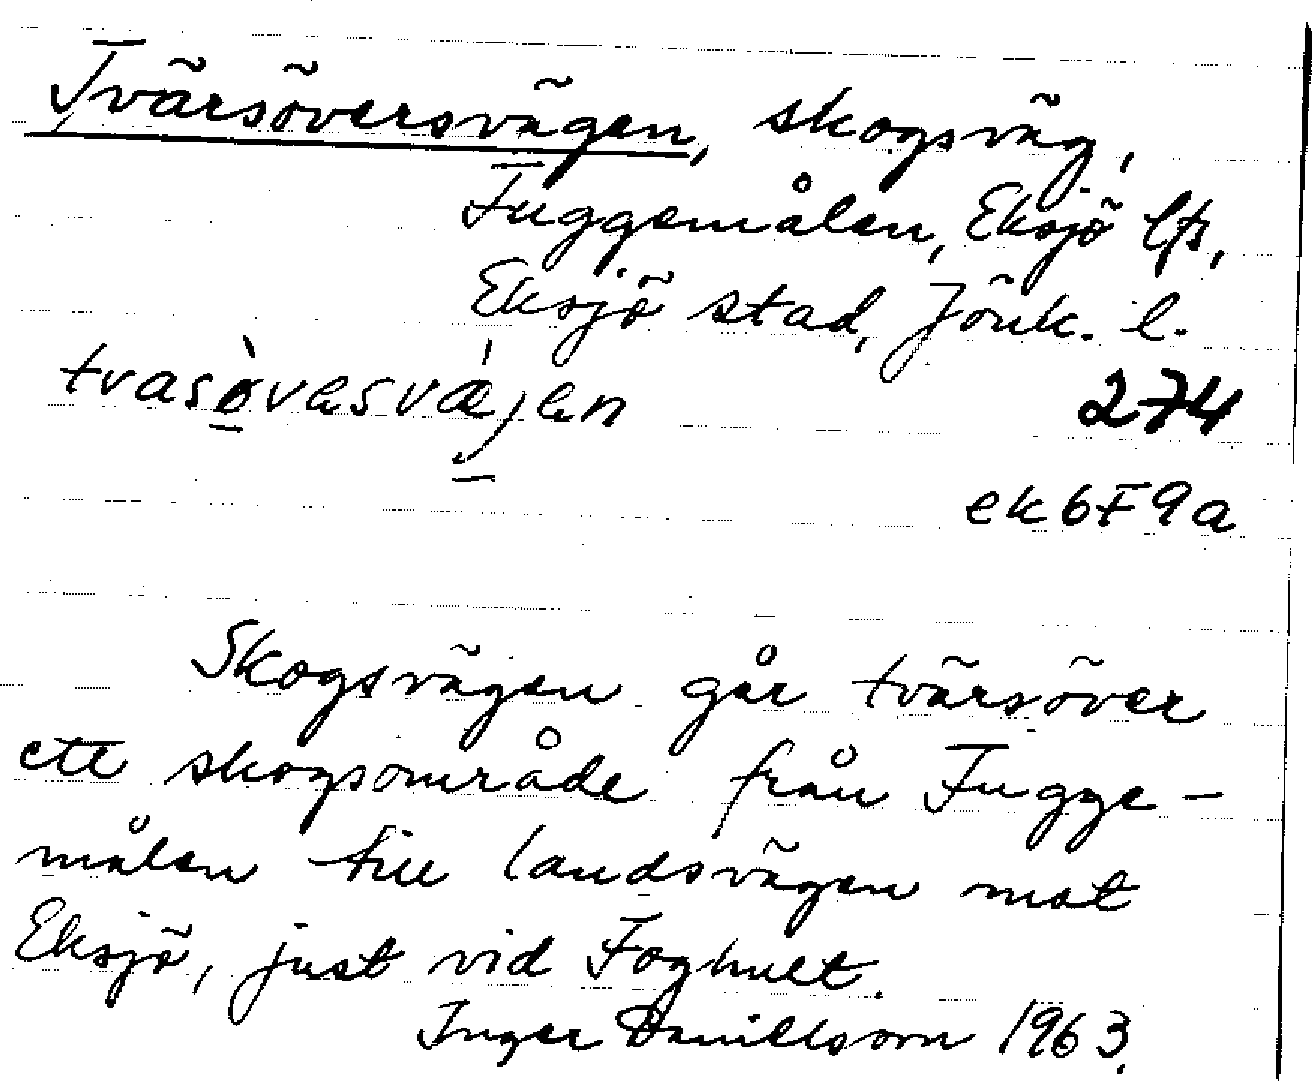 Tvärsöversvägen, skogsväg,
Fuggemålen, Eksjö lfs,
Eksjö stad, Jönk. l.
tvasòvesvǽjen
274
ek6F9a
Skogsvägen går tvärsöver
ett skogsområde från Fugge-
målen till landsvägen mot
Eksjö, just vid Foghult.
Inger Danillsom 1963.